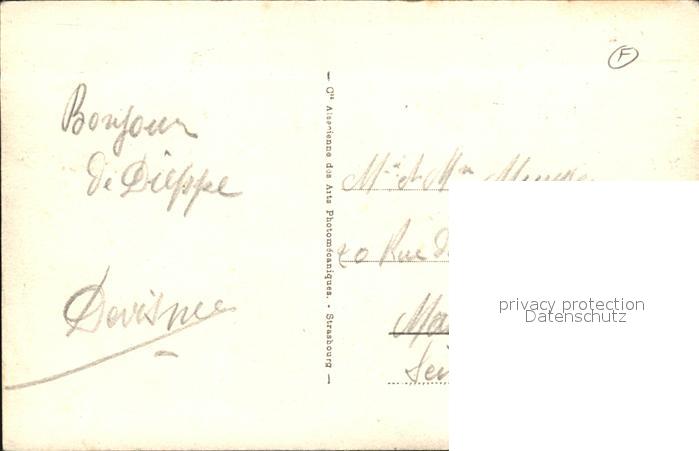 F
Bonjour
de Dieppe
Cie Alsacienne des Arts Photomécaniques. - Strasbourg
Mr et Mme
20 Rue d
privacy protection
Datenschutz
Ma
Sei